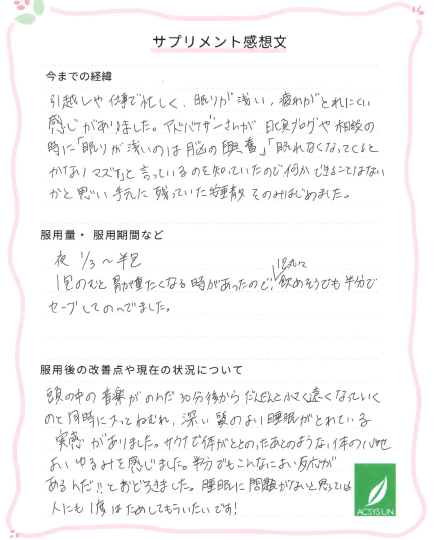 サプリメント感想文
今までの経緯
引越しや仕事で忙しく、眠りが浅い、疲れがとれにくい
感じがありました。アドバイザーさんが日頃ブログや相談の
時に「眠りが浅いのは脳の興奮」「眠れなくなってくると
かなりマズイ」と言っているのを知っていたので何かできることはない
かと思い手元に残っていた 散そのみはじめました。
服用量・ 服用期間など
夜 1/3 〜 半包
1包のむと胃が重たくなる時があったので、1包丸々飲めそうでも半分で
セーブしてのんでました。
服用後の改善点や現在の状況について
頭の中の音楽がのんだ30分後からだんだん小さく遠くなっていく
のと同時に入ってねむれ、深い質のよい睡眠がとれている
実感がありました。サウナで体がととのったあとのような、体の心地
よいゆるみを感じました。半分でもこんなによい反応が
あるんだ!!とおどろきました。睡眠に問題がないと思っている
人にも1度はためしてもらいたいです!
ACSYSUN